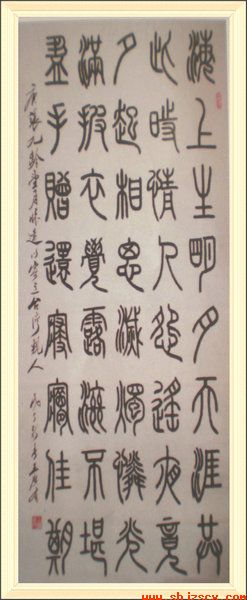 海上生明月天涯共
此時情人怨遙夜竟
夕起相思滅燭憐光
滿披衣覺露滋不堪
盈手贈還寢夢佳期
唐張九齡望月懷遠
www.sbjzscw.com